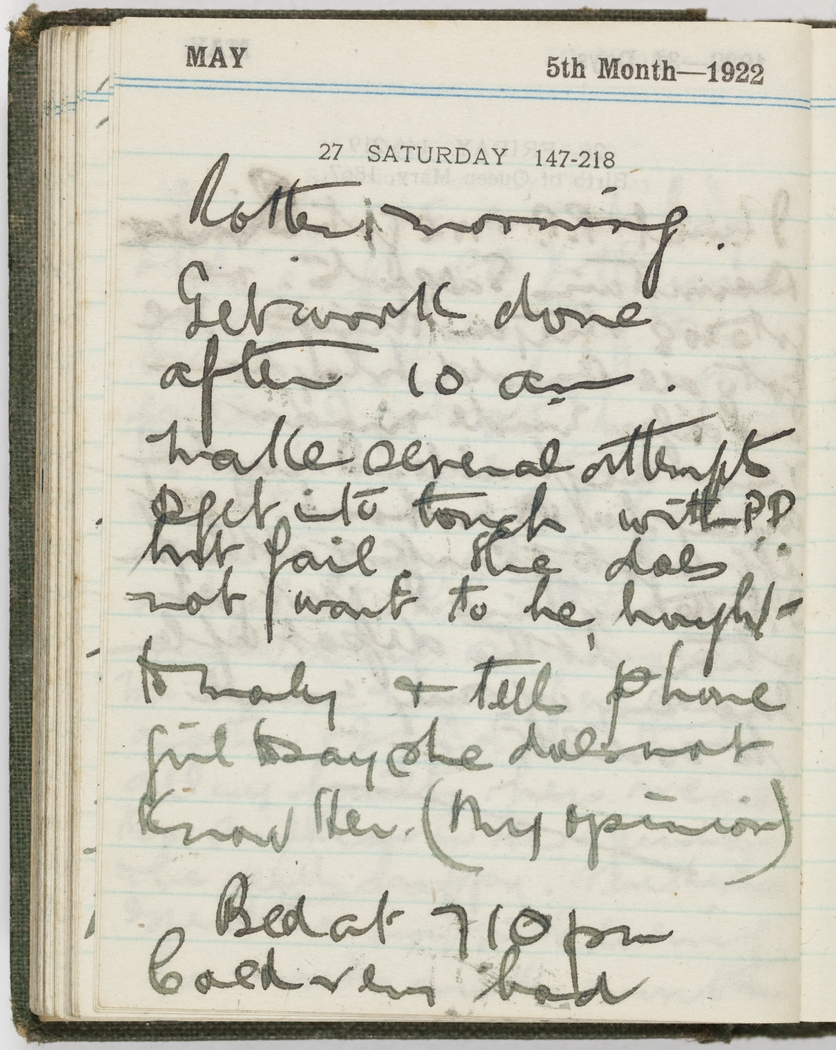 MAY
5th Month—1922
27 SATURDAY 147-218
Rotten morning.
Get work done
after 10 am.
make several attempts
to get into touch with P.P.
but fail. She does
not want to be
& tell phone
girl to say she does not
know Her. (My opinion)
Bed at 7 10 pm
Cold very bad